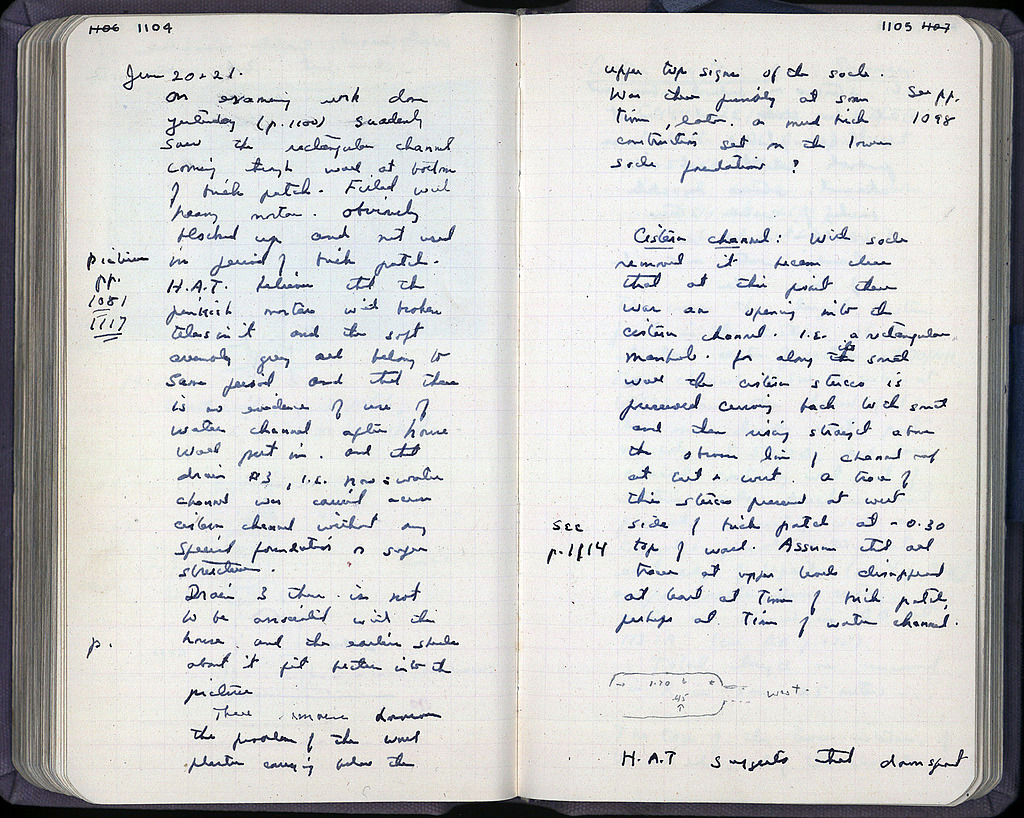 1106 1104
June 20+21.
On examining work done
yesterday (p. 1100) suddenly
saw the rectangular channel
coming through wall at bottom
of brick patch. Filled with
heavy mortar. Obviously
blocked up and not used
picture in period of brick patch.
pp. H.A.T. believes that the
1081 pinkish mortar with broken
1117 tiles in it and the soft
grey all belong to
same period and that there
is no evidence of use of
water channel after house
wall put in. and that
drain #3, i.e. now = water
channel was carried across
cistern channel without any
special foundations or super
structure.
Drain 3 then is not
to be associated with the
p. house and the earlier
about it fit better into the
picture
There remains however
the problem of the wall
plaster carrying below the
1105 1107
upper top signs of the socle.
Was there possibly at some
time, later, a mud brick
construction set on the lower
socle foundations?
See pp.
1098
Cistern channel: With socle
removed it became clear
that at this point there
was an opening into the
cistern channel. I.E. a rectangular
manhole. for along its south
wall the cistern stucco is
preserved curving back to the south
and then rising straight above
the obvious line of channel roof
at east + west. A trace of
this stucco preserved at west
see side of brick patch at -0.30
p. 1114 top of wall. Assume that all
traces at upper levels disappeared
at least at time of brick patch,
perhaps at time of water channel.
1.70
.45
west.
H.A.T suggests that downspout